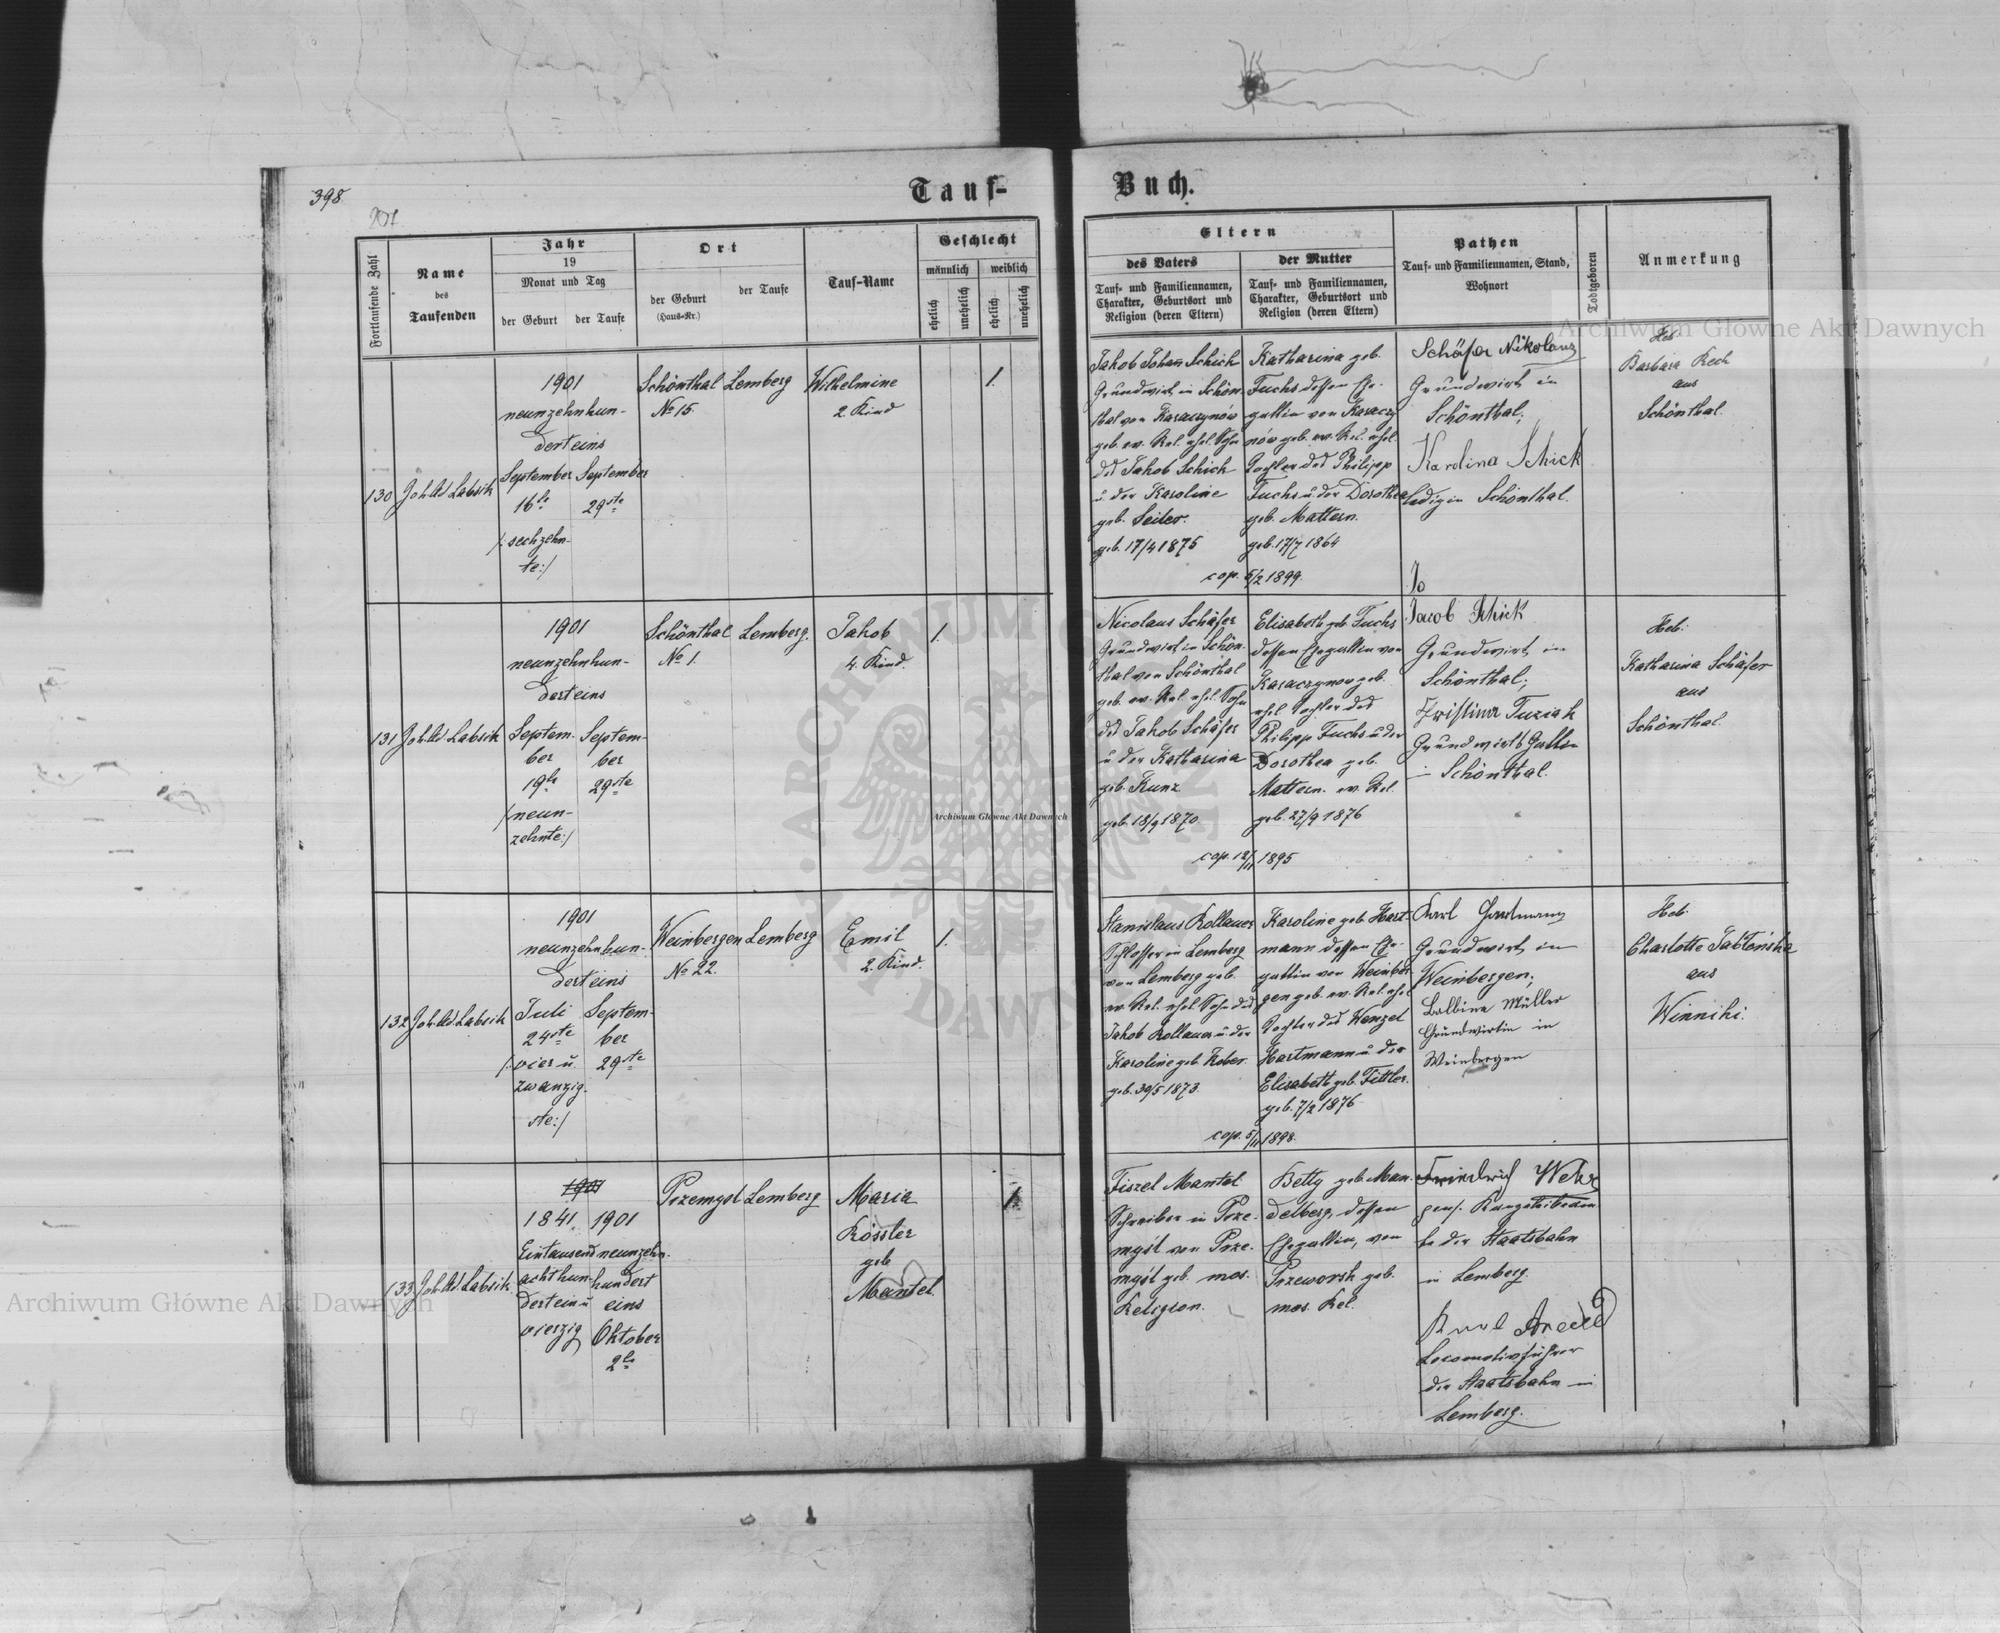 398
201
Tauf-
Buch.
Fortlaufende Zahl
Name
des
Taufenden
Jahr
19
Monat und Tag
der Geburt
der Taufe
Ort
der Geburt
(Haus-Nr.)
der Taufe
Tauf-Name
Geschlecht
männlich
weiblich
ehelich
unehelich
ehelich
unehelich
Eltern
des Vaters
Tauf- und Familiennamen,
Charakter, Geburtsort und
Religion (deren Eltern)
der Mutter
Tauf- und Familiennamen,
Charakter, Geburtsort und
Religion (deren Eltern)
Pathen
Tauf- und Familiennamen, Stand,
Wohnort
Todtgeboren
Anmerkung
130
Joh. Ad. Labsik
1901
neunzehnhun-
derteins
September
16te
/: sechzehn-
te:/
September
29ste
Schönthal
No 15.
Lemberg
Wilhelmine
2. Kind
1.
Jakob Johann Schick
Grundwirt in Schön-
thal von Karaczynów
geb. ev. Rel. ehel. Sohn
des Jakob Schick
u. der Karoline
geb. Seiler.
geb. 17/4 1875
Katharina geb.
Fuchs dessen Ehe-
gattin von Karaczy
nów geb. ev. Rel. ehel.
Tochter des Philipp
Fuchs u. der Dorothea
geb. Mattern.
geb. 17/7 1864
cop. 5/2 1899.
Schäfer Nikolaus
Grundwirt in
Schönthal;
Karolina Schick
ledig in Schönthal.
Jo
Heb.
Barbara Rech
aus
Schönthal.
131
Joh. Ad. Labsik
1901
neunzehnhun-
derteins
Septem-
ber
19te
/neun-
zehnte:/
Septem-
ber
29ste
Schönthal
No 1.
Lemberg.
Jakob
4. Kind.
1.
Nicolaus Schäfer
Grundwirt in Schön-
thal von Schönthal
geb. ev. Rel. ehel. Sohn
des Jakob Schäfer
u. der Katharina
geb. Kunz
geb. 18/9 1870.
Elisabeth geb. Fuchs
dessen Ehegattin von
Karaczynow geb.
ehel. Tochter des
Philipp Fuchs u. der
Dorothea geb.
Mattern. ev. Rel.
geb. 27/9 1876
cop. 12/11 1895
Jacob Schick
Grundwirt in
Schönthal;
Kristina Tuziak
Grundwirts Gattin
in Schönthal.
Heb:
Katharina Schäfer
aus
Schönthal.
132
Joh. Ad. Labsik
1901
neunzehnhun-
derteins
Juli
24ste
/: vier u.
zwanzig-
ste:/
Septem-
ber
29ste
Weinbergen
No 22.
Lemberg
Emil
2. Kind.
1.
Stanislaus Kollauer
Schlosser in Lemberg
von Lemberg geb.
ev. Rel. ehel. Sohn des
Jakob Kollauer u. der
Karoline geb. Kober.
geb. 30/5 1873.
Karoline geb. Hart-
mann dessen Ehe-
gattin von Weinber-
gen geb. ev. Rel. ehel.
Tochter des Wenzel
Hartmann u. der
Elisabeth geb. Fittler.
geb. 7/2 1876
cop. 5/11 1898.
Karl Hartmann
Grundwirt in
Weinbergen;
Balbina Müller
Grundwirtin in
Weinbergen
Heb.
Charlotte Jabłońska
aus
Winniki.
133
Joh. Ad. Labsik
1901
1841.
Eintausend
achthun-
dert ein u.
vierzig
1901
neunzehn-
hundert
eins
Oktober
2te
Przemysl
Lemberg
Maria
Kössler
geb
Mantel.
1.
Fiszel Mantel
Schreiber in Prze-
myśl von Prze-
myśl geb. mos.
Religion.
Betty geb. Man-
delberg, dessen
Ehegattin, von
Przeworsk geb.
mos. Rel.
Friedrich Weber
pens.
der Staatsbahn
in Lemberg.
Karl
Locomotivführer
der Staatsbahn in
Lemberg.
Archiwum Główne Akt Dawnych
Archiwum Główne Akt Dawnych
Archiwum Główne Akt Dawnych